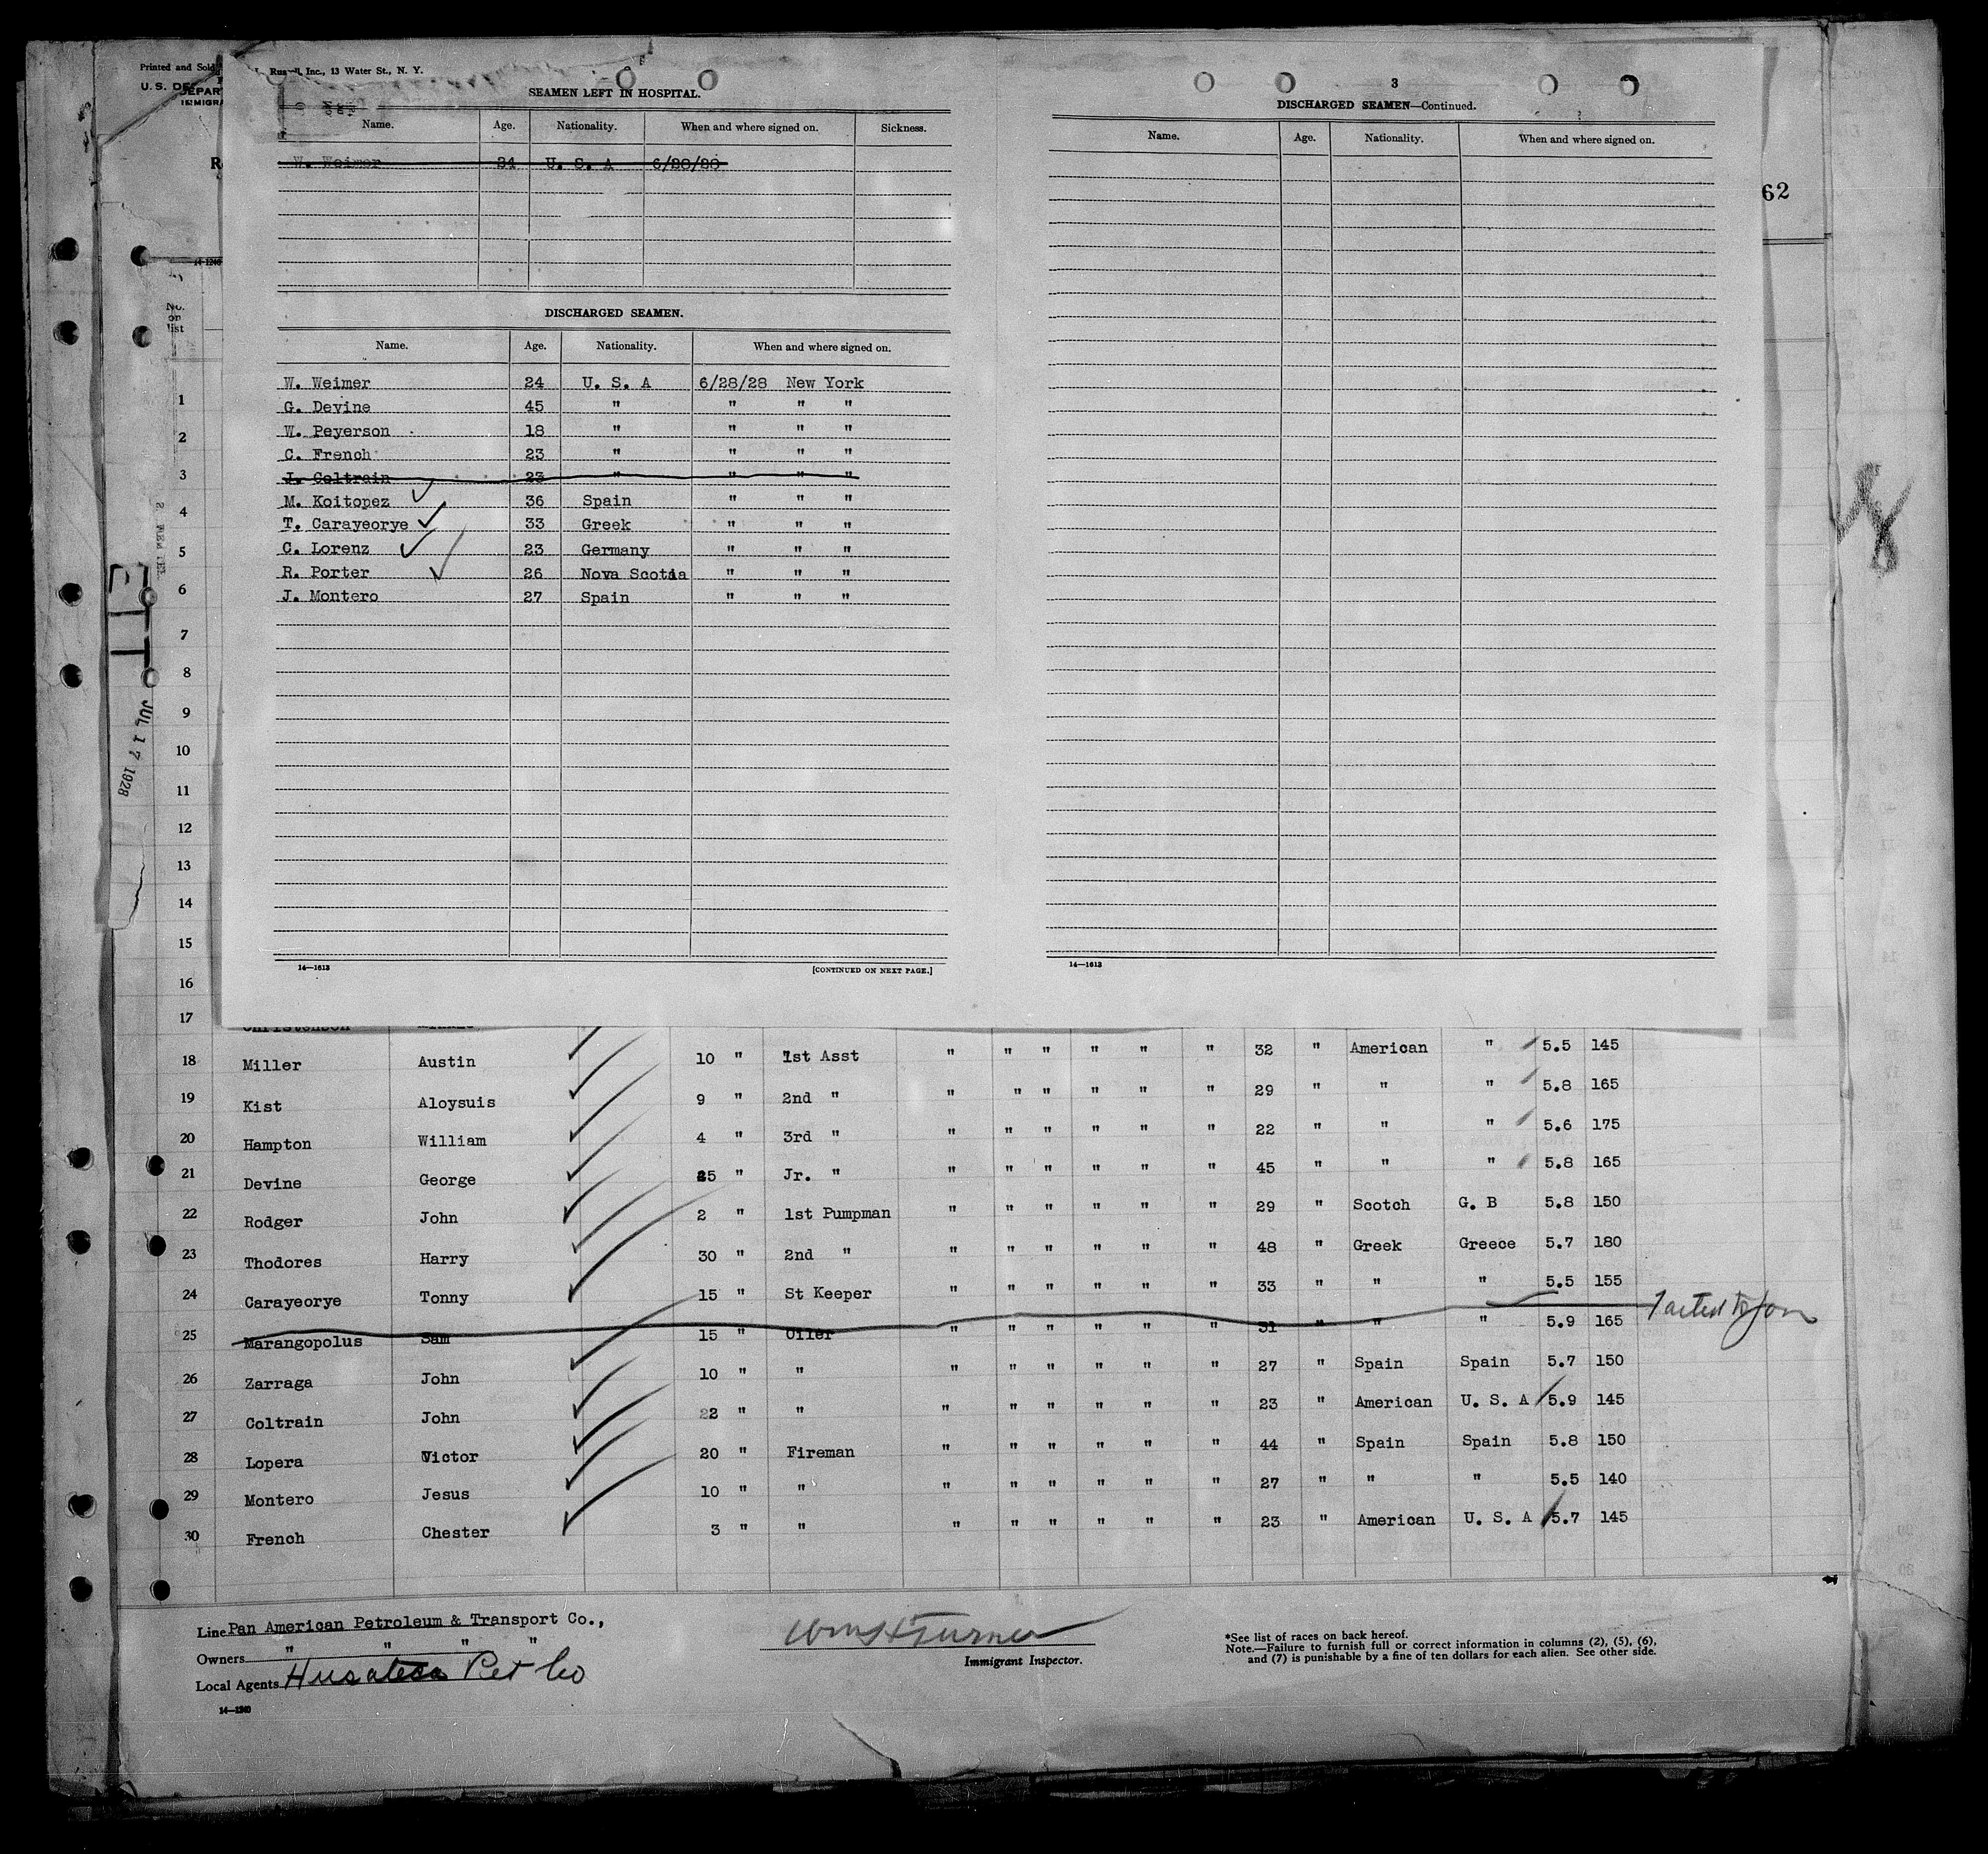 Printed and Sold
Inc., 13 Water St., N. Y.
U. S. DE
DEPAR
IMMIGRA
R
62
14-1240
No.
on
list
JUL 17 1928
SEAMEN LEFT IN HOSPITAL.
Name. Age. Nationality. When and where signed on. Sickness.
W. Weimer 24 U. S. A 6/28/28
DISCHARGED SEAMEN.
Name. Age. Nationality. When and where signed on.
W. Weimer 24 U. S. A 6/28/28 New York
G. Devine 45 " " " "
W. Peyerson 18 " " " "
C. French 23 " " " "
J. Coltrain 23 " " " "
M. Koitopez 36 Spain " " "
T. Carayeorye 33 Greek " " "
C. Lorenz 23 Germany " " "
R. Porter 26 Nova Scotia " " "
J. Montero 27 Spain " " "
14—1613 [CONTINUED ON NEXT PAGE.]
3
DISCHARGED SEAMEN—Continued.
Name. Age. Nationality. When and where signed on.
14—1613
1
2
3
4
5
6
7
8
9
10
11
12
13
14
15
16
17 Christenson
18 Miller Austin 10 " 1st Asst " " " " " " 32 " American " 5.5 145
19 Kist Aloysuis 9 " 2nd " " " " " " " 29 " " " 5.8 165
20 Hampton William 4 " 3rd " " " " " " " 22 " " " 5.6 175
21 Devine George 25 " Jr. " " " " " " " 45 " " " 5.8 165
22 Rodger John 2 " 1st Pumpman " " " " " " 29 " Scotch G. B 5.8 150
23 Thodores Harry 30 " 2nd " " " " " " " 48 " Greek Greece 5.7 180
24 Carayeorye Tonny 15 " St Keeper " " " " " " 33 " " " 5.5 155
25 Marangopolus Sam 15 " Oiler " " " " " " 31 " " " 5.9 165 Failed to Join
26 Zarraga John 10 " " " " " " " " 27 " Spain Spain 5.7 150
27 Coltrain John 22 " " " " " " " " 23 " American U. S. A 5.9 145
28 Lopera Victor 20 " Fireman " " " " " " 44 " Spain Spain 5.8 150
29 Montero Jesus 10 " " " " " " " " 27 " " " 5.5 140
30 French Chester 3 " " " " " " " " 23 " American U. S. A 5.7 145
Line Pan American Petroleum & Transport Co.,
Owners " " " "
Local Agents Pet Co
14—1240
Wm H Turner
Immigrant Inspector.
*See list of races on back hereof.
Note.—Failure to furnish full or correct information in columns (2), (5), (6),
and (7) is punishable by a fine of ten dollars for each alien. See other side.